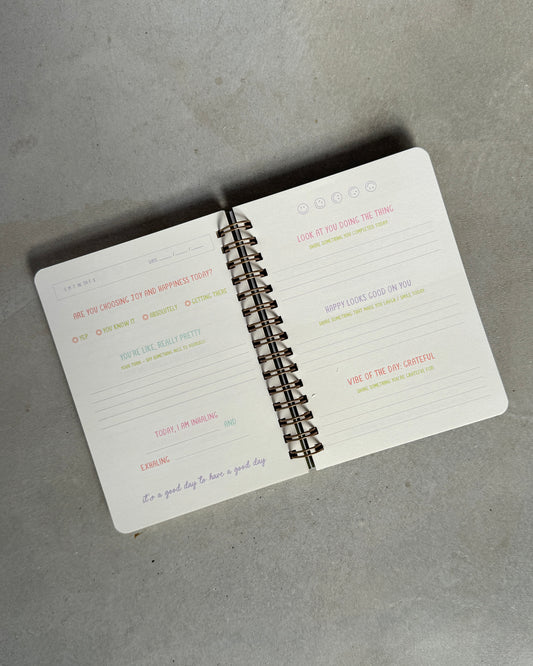 S M T W T F S
DATE ____/____/____
ARE YOU CHOOSING JOY AND HAPPINESS TODAY?
YEP YOU KNOW IT ABSOLUTELY GETTING THERE
YOU'RE LIKE, REALLY PRETTY
YOUR THING - SAY SOMETHING NICE TO YOURSELF!
TODAY, I AM INHALING AND
EXHALING
it's a good day to have a good day
LOOK AT YOU DOING THE THING
SHARE SOMETHING YOU COMPLETED TODAY.
HAPPY LOOKS GOOD ON YOU
SHARE SOMETHING THAT MADE YOU LAUGH / SMILE TODAY.
VIBE OF THE DAY: GRATEFUL
SHARE SOMETHING YOU'RE GRATEFUL FOR.